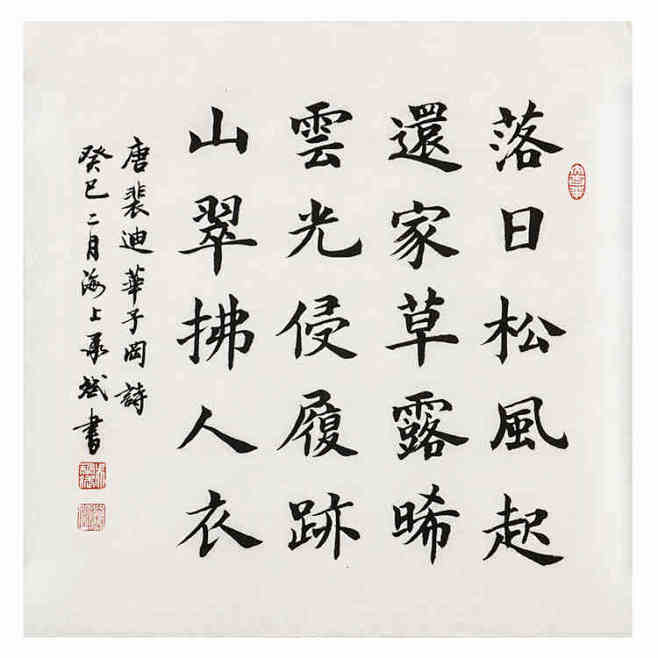 落日松風起
還家草露晞
雲光侵履跡
山翠拂人衣
唐裴迪華子岡詩
癸巳二月海上承斌書